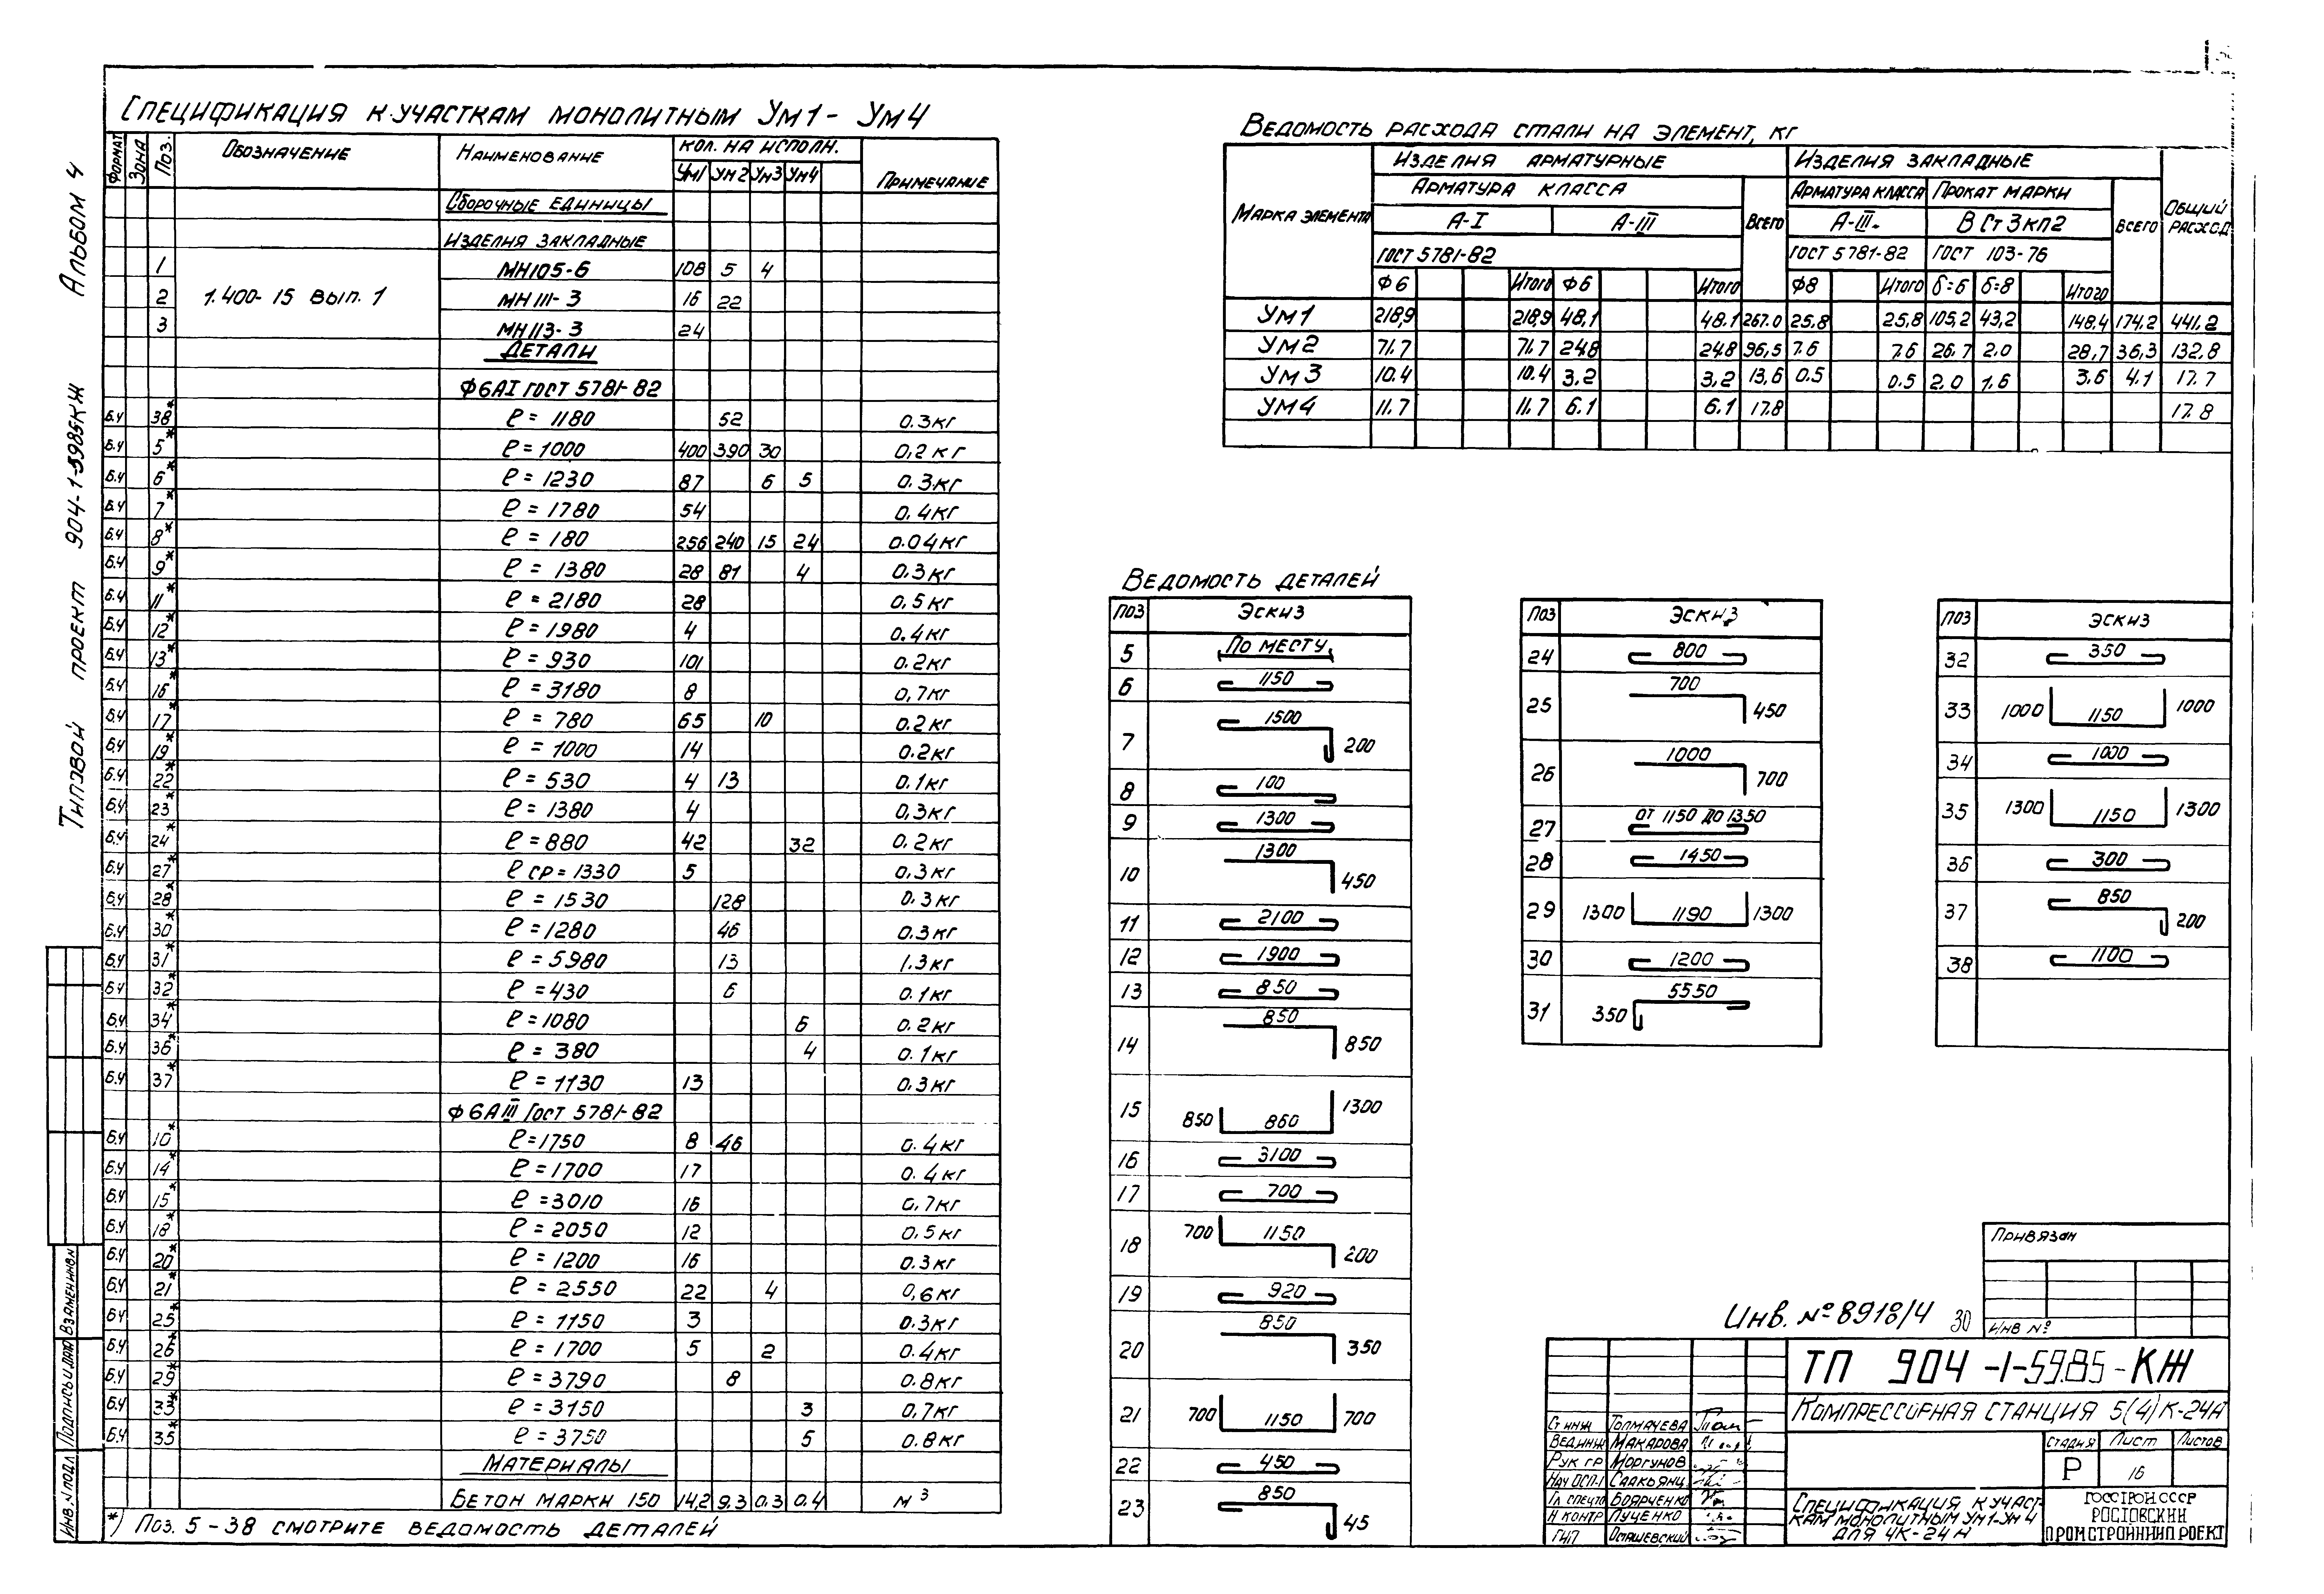 Альбом 4
Типовой проект 904-1-5985КЖ
Спецификация к участкам монолитным Ум1 - Ум4
Формат Зона Поз. Обозначение Наименование Кол. на исполн. Примечание
Ум1 Ум2 Ум3 Ум4
Сборочные единицы
Изделия закладные
1 МН105-6 108 5 4
2 1.400-15 вып. 1 МН111-3 16 22
3 МН113-3 24
Детали
Ф6АI ГОСТ 5781-82
Б.Ч 38* ℓ = 1180 52 0.3кг
Б.Ч 5* ℓ = 1000 400 390 30 0,2кг
Б.Ч 6* ℓ = 1230 87 6 5 0.3кг
Б.Ч 7* ℓ = 1780 54 0.4кг
Б.Ч 8* ℓ = 180 256 240 15 24 0.04кг
Б.Ч 9* ℓ = 1380 28 81 4 0,3кг
Б.Ч 11* ℓ = 2180 28 0,5кг
Б.Ч 12* ℓ = 1980 4 0.4кг
Б.Ч 13* ℓ = 930 101 0.2кг
Б.Ч 16* ℓ = 3180 8 0,7кг
Б.Ч 17* ℓ = 780 65 10 0.2кг
Б.Ч 19* ℓ = 1000 14 0.2кг
Б.Ч 22* ℓ = 530 4 13 0.1кг
Б.Ч 23* ℓ = 1380 4 0,3кг
Б.Ч 24* ℓ = 880 42 32 0.2кг
Б.Ч 27* ℓ ср = 1330 5 0.3кг
Б.Ч 28* ℓ = 1530 128 0.3кг
Б.Ч 30* ℓ = 1280 46 0.3кг
Б.Ч 31* ℓ = 5980 13 1.3кг
Б.Ч 32* ℓ = 430 6 0.1кг
Б.Ч 34* ℓ = 1080 6 0.2кг
Б.Ч 36* ℓ = 380 4 0.1кг
Б.Ч 37* ℓ = 1130 13 0.3кг
Ф6АIII ГОСТ 5781-82
Б.Ч 10* ℓ = 1750 8 46 0.4кг
Б.Ч 14* ℓ = 1700 17 0.4кг
Б.Ч 15* ℓ = 3010 16 0,7кг
Б.Ч 18* ℓ = 2050 12 0,5кг
Б.Ч 20* ℓ = 1200 16 0.3кг
Б.Ч 21* ℓ = 2550 22 4 0,6кг
Б.Ч 25* ℓ = 1150 3 0.3кг
Б.Ч 26* ℓ = 1700 5 2 0.4кг
Б.Ч 29* ℓ = 3790 8 0.8кг
Б.Ч 33* ℓ = 3150 3 0,7кг
Б.Ч 35* ℓ = 3750 5 0.8кг
Материалы
Бетон марки 150 14,2 9.3 0.3 0.4 м³
*) Поз. 5-38 смотрите ведомость деталей
Взамен инв.№
Подпись и дата
Инв.№ подл
Ведомость расхода стали на элемент, кг
Марка элемента Изделия арматурные Изделия закладные Общий расход
Арматура класса Всего Арматура класса Прокат марки Всего
А-I А-III А-III ВСт3кп2
ГОСТ 5781-82 ГОСТ 5781-82 ГОСТ 103-76
Ф6 Итого Ф6 Итого Ф8 Итого δ=6 δ=8 Итого
Ум1 218,9 218,9 48,1 48.1 267.0 25.8 25,8 105,2 43,2 148,4 174,2 441.2
Ум2 71.7 71.7 24.8 24.8 96,5 7.6 7.6 26.7 2.0 28,7 36,3 132.8
Ум3 10.4 10.4 3,2 3,2 13,6 0.5 0.5 2.0 1.6 3.6 4.1 17.7
Ум4 11.7 11.7 6.1 6.1 17.8 17.8
Ведомость деталей
Поз Эскиз
5 По месту
6 1150
7 1500 200
8 100
9 1300
10 1300 450
11 2100
12 1900
13 850
14 850 850
15 850 860 1300
16 3100
17 700
18 700 1150 200
19 920
20 850 350
21 700 1150 700
22 450
23 850 45
Поз Эскиз
24 800
25 700 450
26 1000 700
27 от 1150 до 1350
28 1450
29 1300 1190 1300
30 1200
31 350 5550
Поз Эскиз
32 350
33 1000 1150 1000
34 1000
35 1300 1150 1300
36 300
37 850 200
38 1100
Привязан
Инв №
Инв. № 8918/4 30
ТП 904-1-59.85-КЖ
Компрессорная станция 5(4)К-24А
Ст инж Толмачева
Вед инж Макарова
Рук гр Моргунов
Нач ОСП-1 Саакьянц
Гл спец то Боярченко
Н контр Луценко
ГИП
Стадия Лист Листов
Р 16
Спецификация к участкам монолитным Ум1-Ум4
для 4К-24А
Госстрой СССР
Ростовский
Промстройниипроект